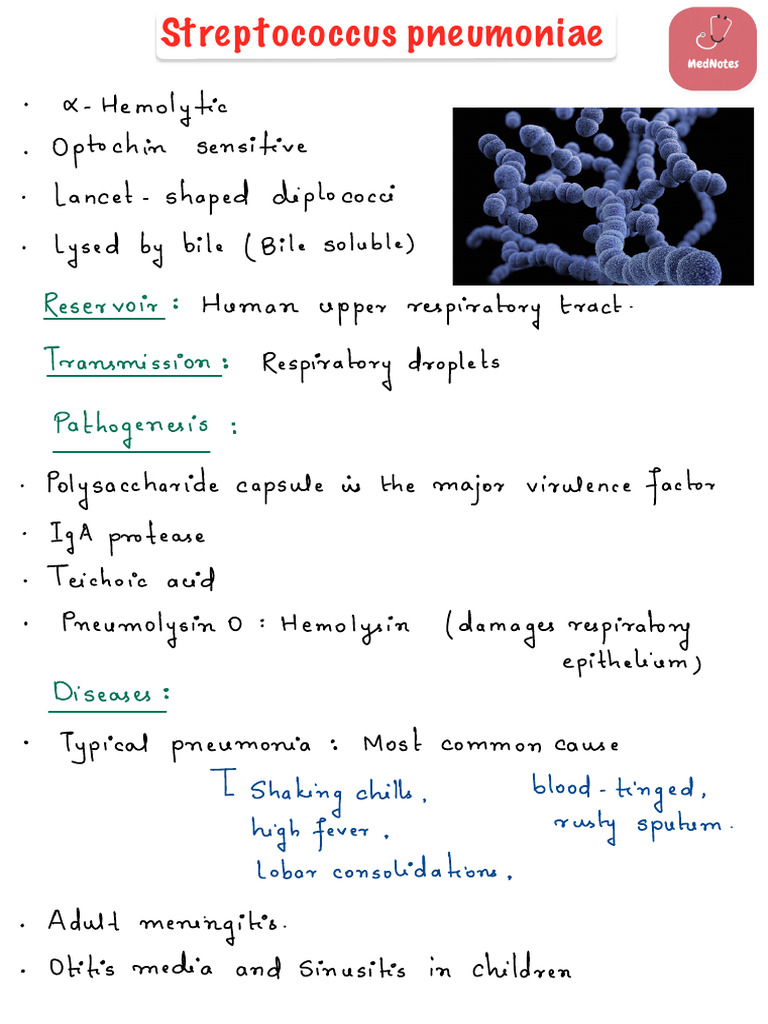 Streptococcus pneumoniae
MedNotes
· α-Hemolytic
· Optochin sensitive
· Lancet-shaped diplococci
· Lysed by bile (Bile soluble)
Reservoir: Human upper respiratory tract.
Transmission: Respiratory droplets
Pathogenesis:
· Polysaccharide capsule is the major virulence factor
· IgA protease
· Teichoic acid
· Pneumolysin O: Hemolysin (damages respiratory
epithelium)
Diseases:
· Typical pneumonia: Most common cause
Shaking chills, blood-tinged,
high fever, rusty sputum.
Lobar consolidations,
· Adult meningitis.
· Otitis media and Sinusitis in children